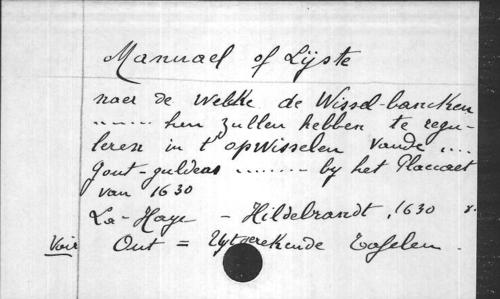 Manuael of Lijste
naer de Welke de Wissel-bancken
........ hen zullen hebben te regu-
leren in t' opwisselen vande ....
Gout-guldens ......... by het Placcaet
van 1630
La-Haye - Hildebrandt, 1630 r.
Voir Out = Uytgerekende Tafelen.